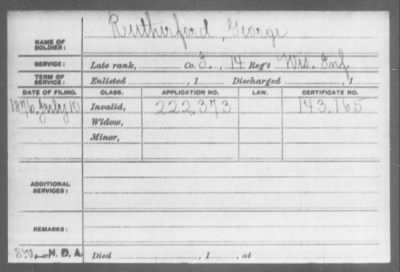 Rutherford, George
NAME OF SOLDIER:
SERVICE: Late rank, Co. I, 14 Reg't Wis. Inf.
TERM OF SERVICE: Enlisted , 1 Discharged , 1
DATE OF FILING. CLASS. APPLICATION NO. LAW. CERTIFICATE NO.
1876, July 10 Invalid, 222,373 143,165
Widow,
Minor,
ADDITIONAL SERVICES:
REMARKS:
N.D.A. Died , 1 , at